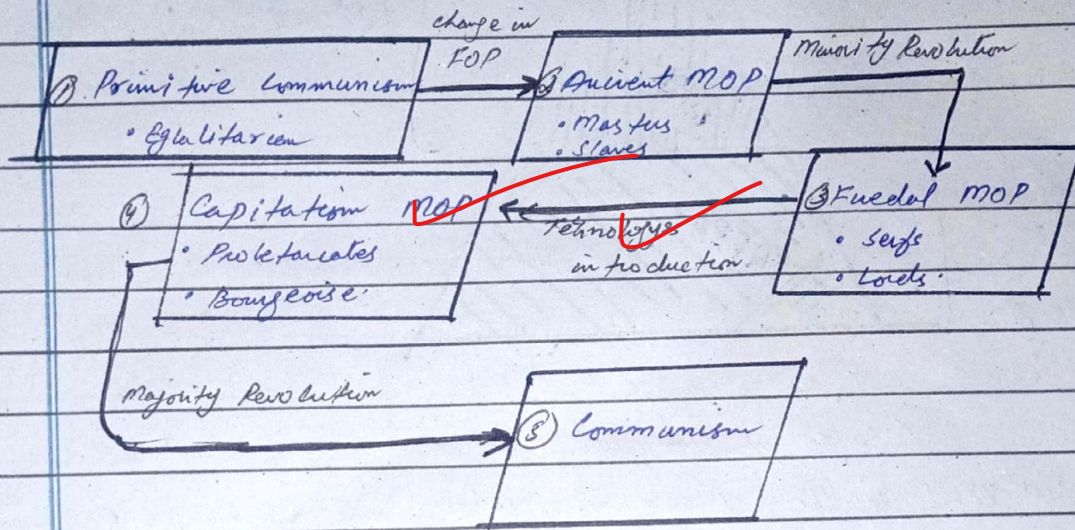 change in
FOP
① Primitive Communism
• Eglalitarian
② Ancient MOP
• Mastus
• Slaves
Minority Revolution
③ Fuedal MOP
• Serfs
• Lords.
Tehnologys
introduction.
④ Capitatism MOP
• Proletariates
• Bourgeoise.
Majority Revolution
⑤ Communism